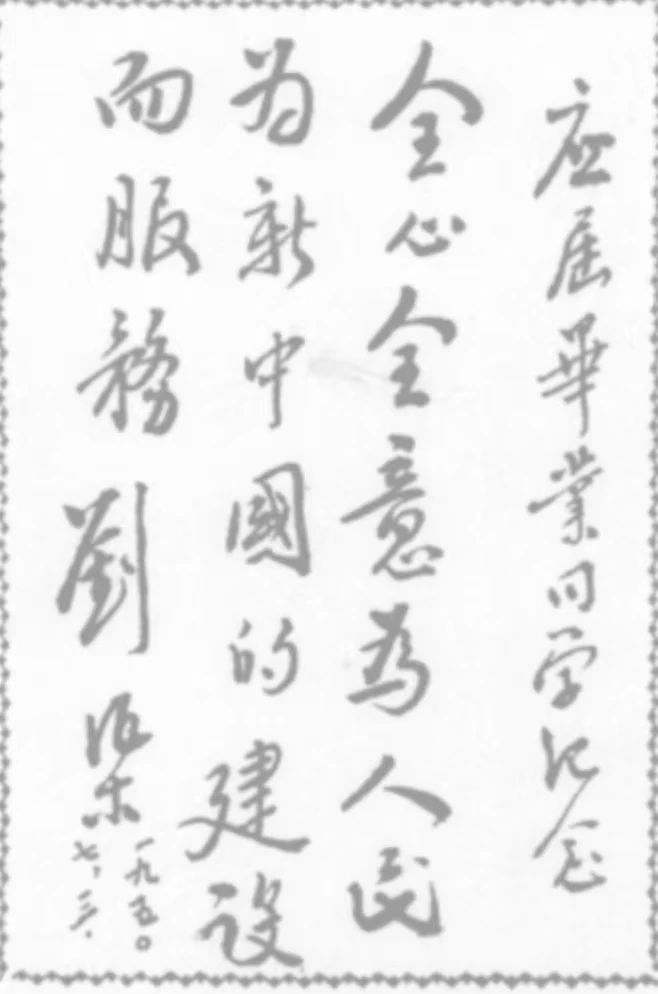 应屆畢業同学纪念
全心全意為人民
为新中國的建設
而服務
劉
一九五〇
七、三、